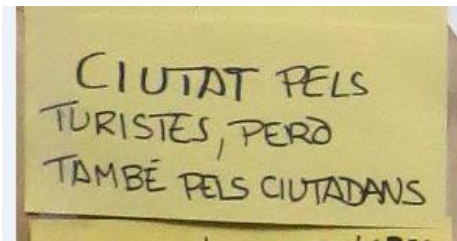 CIUTAT PELS
TURISTES, PERÒ
TAMBÉ PELS CIUTADANS